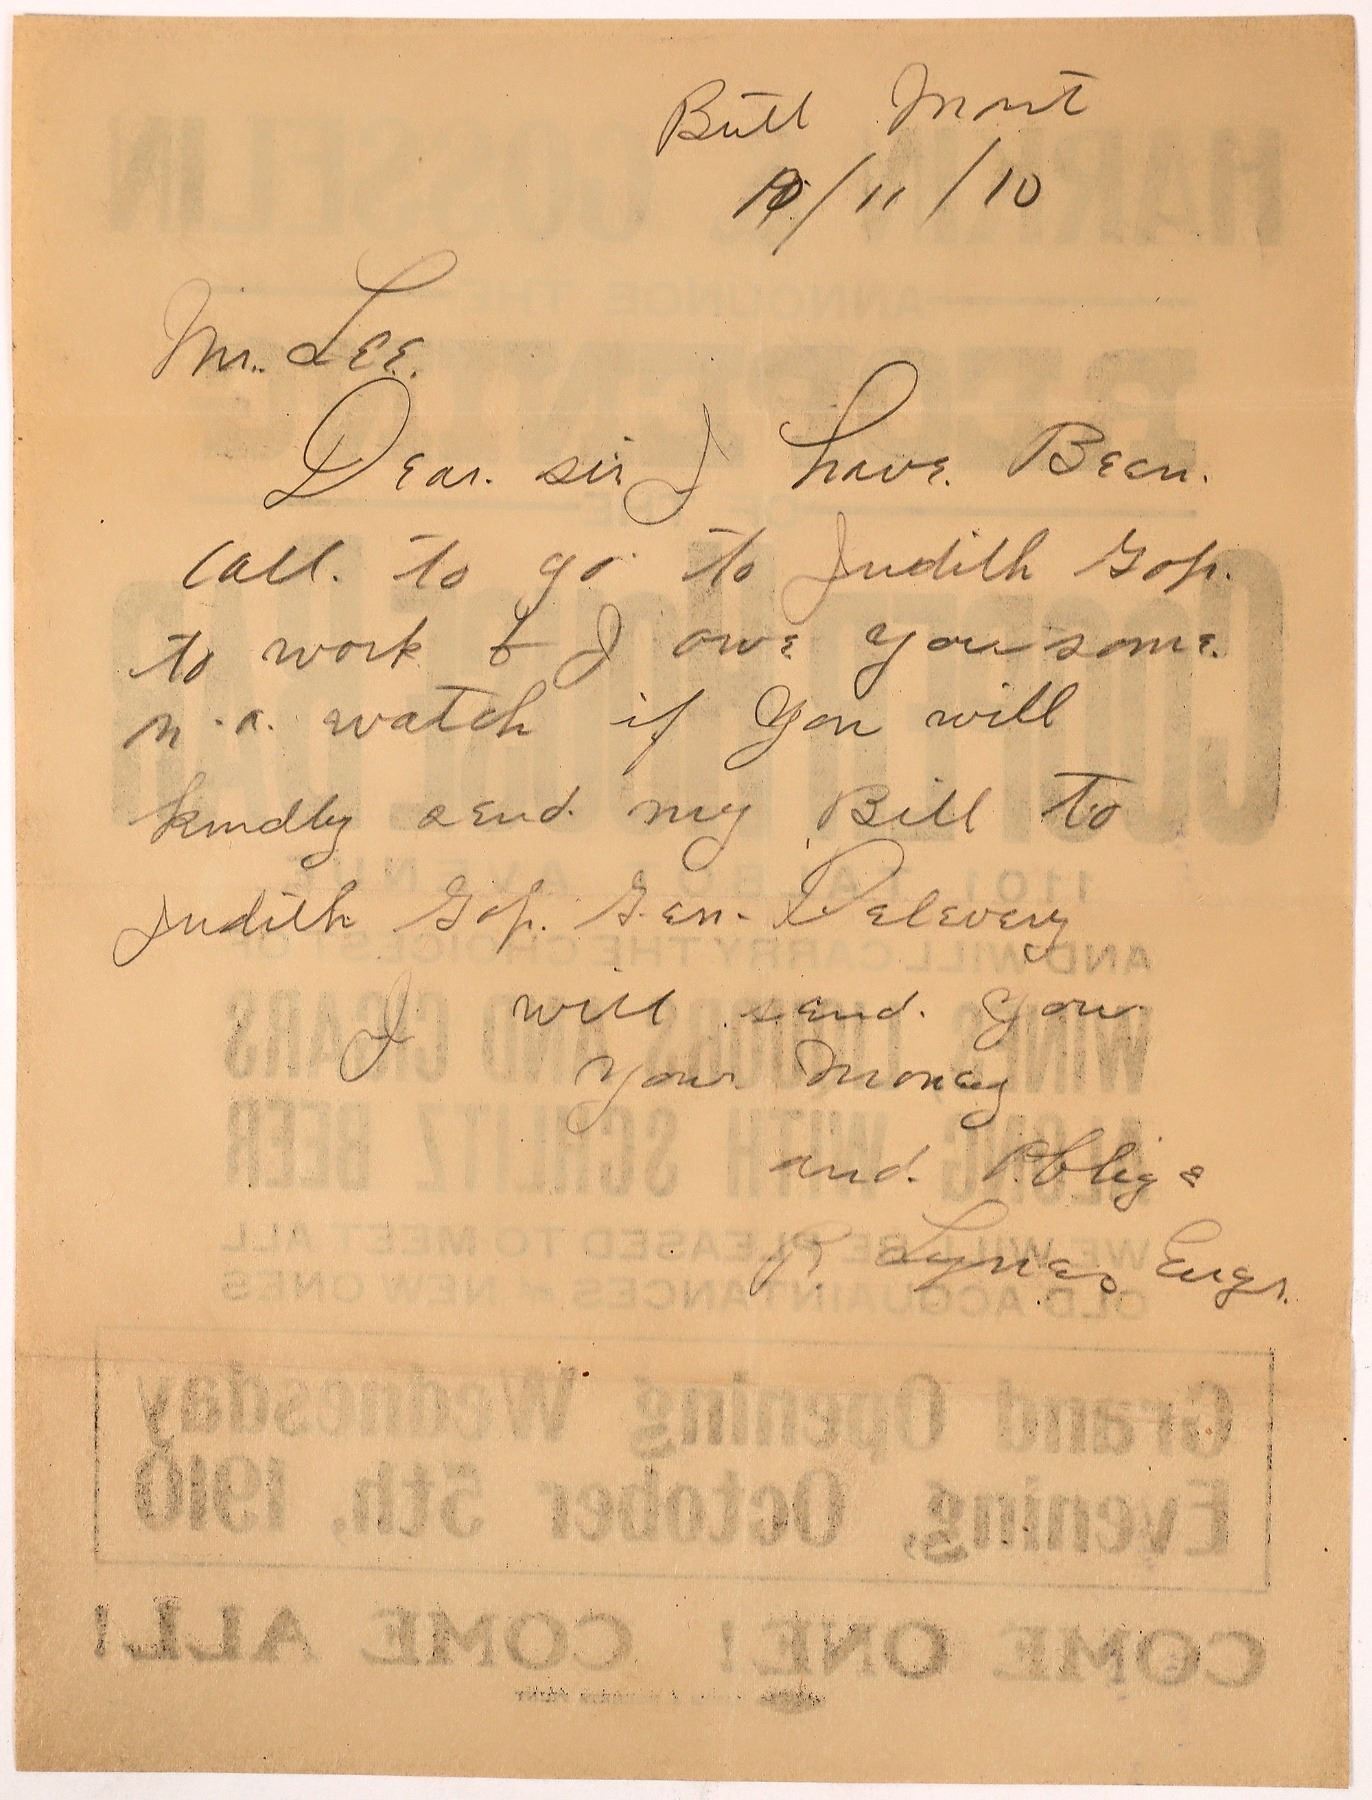 Butt Mont
10/11/10
Mr. LEE.
Dear. sir I have Been.
Call. to go to Judith Gap.
to work & I owe you some.
n.a. watch if you will
kindly send. my Bill to
Judith Gap. Gen. Delevery
I will send. you
your money
and. Oblige
R Lynes Engr.
HARKIN & GOSSELIN
ANNOUNCE THE
OF THE
COURT HOUSE BAR
1101 TALBOT AVENUE
AND WILL CARRY THE CHOICEST OF
WINES, LIQUORS AND CIGARS
ALONG WITH SCHLITZ BEER
WE WILL BE PLEASED TO MEET ALL
OLD ACQUAINTANCES & NEW ONES
Grand Opening Wednesday
Evening, October 5th, 1910
COME ONE! COME ALL!